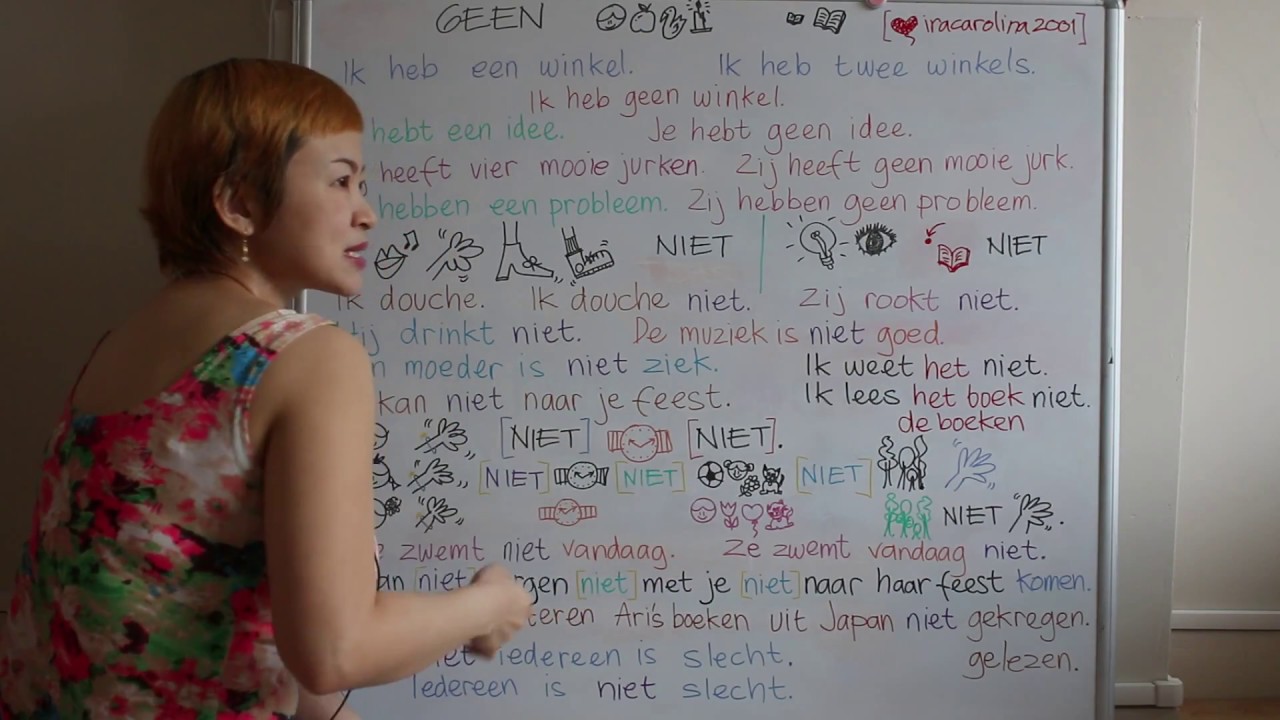 GEEN [iracarolina2001]
Ik heb een winkel. Ik heb twee winkels.
Ik heb geen winkel.
hebt een idee. Je hebt geen idee.
heeft vier mooie jurken. Zij heeft geen mooie jurk.
hebben een probleem. Zij hebben geen probleem.
NIET NIET
Ik douche. Ik douche niet. Zij rookt niet.
Hij drinkt niet. De muziek is niet goed.
moeder is niet ziek. Ik weet het niet.
kan niet naar je feest. Ik lees het boek niet.
de boeken
[NIET] [NIET].
[NIET] [NIET] [NIET]
NIET .
zwemt niet vandaag. Ze zwemt vandaag niet.
[niet] [niet] met je [niet] naar haar feest komen.
Ari's boeken uit Japan niet gekregen.
iedereen is slecht. gelezen.
Iedereen is niet slecht.